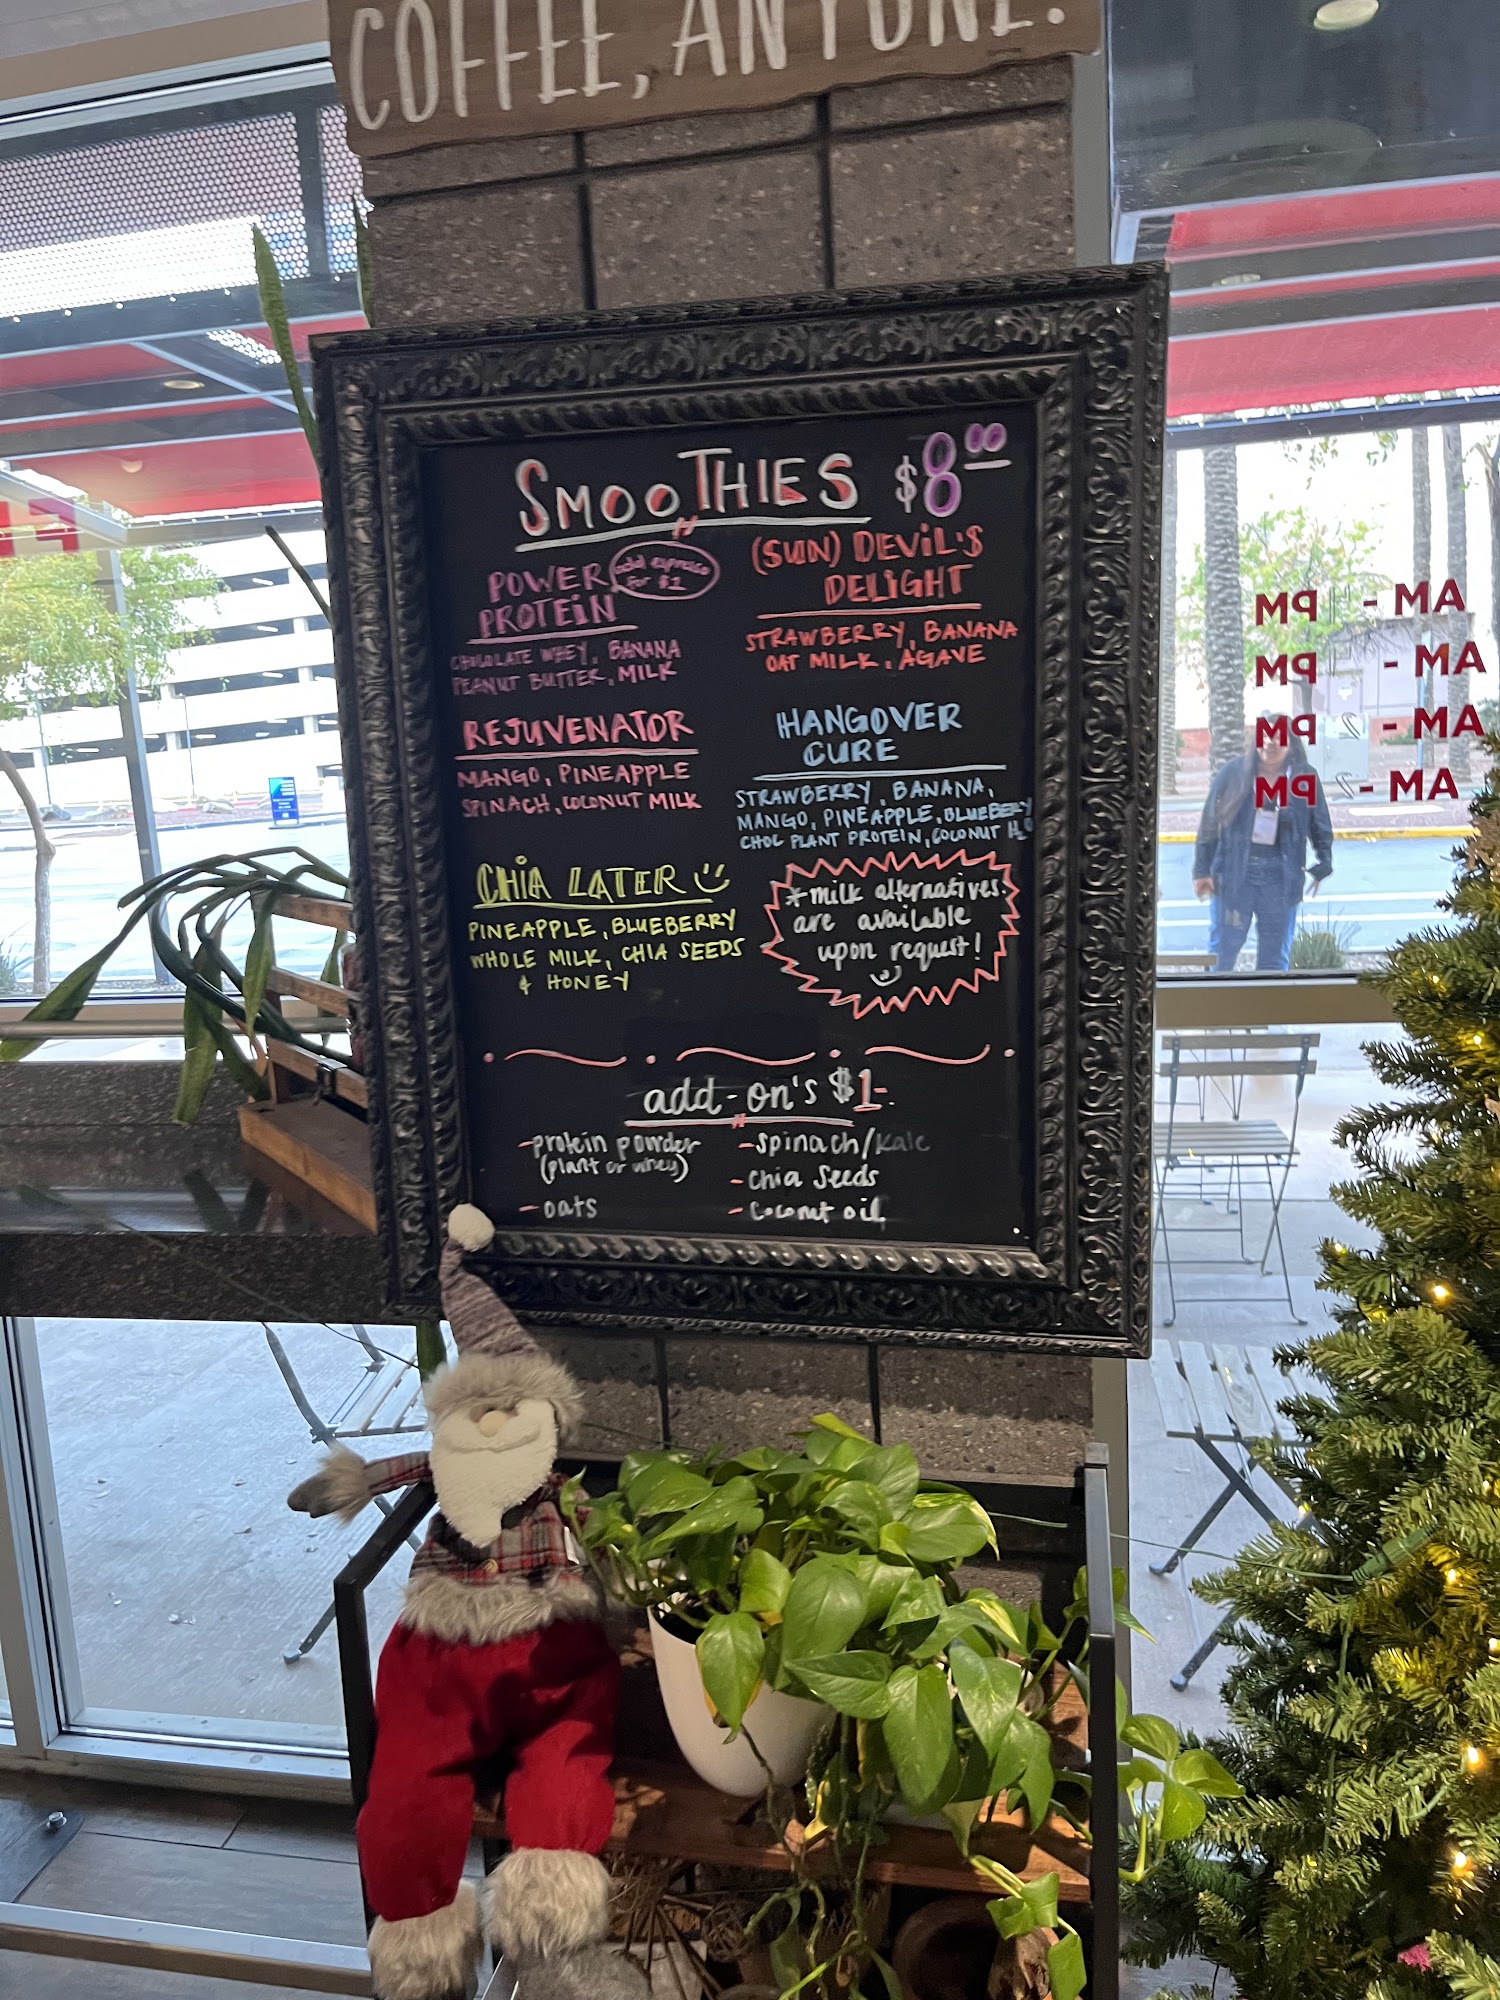 COFFEE, ANYONE?
SMOOTHIES $8.00
POWER
PROTEIN
add espresso
for $1
CHOCOLATE WHEY, BANANA
PEANUT BUTTER, MILK
(SUN) DEViL'S
DELiGHT
STRAWBERRY, BANANA
OAT MILK, AGAVE
REJUVENATOR
MANGO, PINEAPPLE
SPINACH, COCONUT MILK
HANGOVER
CURE
STRAWBERRY, BANANA,
MANGO, PINEAPPLE, BLUEBERRY
CHOC PLANT PROTEIN, COCONUT H2O
CHiA LATER
PINEAPPLE, BLUEBERRY
WHOLE MILK, CHIA SEEDS
& HONEY
*milk alternatives
are available
upon request!
add-on's $1-
-protein powder
(plant or whey)
-oats
-spinach/kale
-chia seeds
-coconut oil
AM - PM
AM - PM
AM - 2 PM
AM - 2 PM